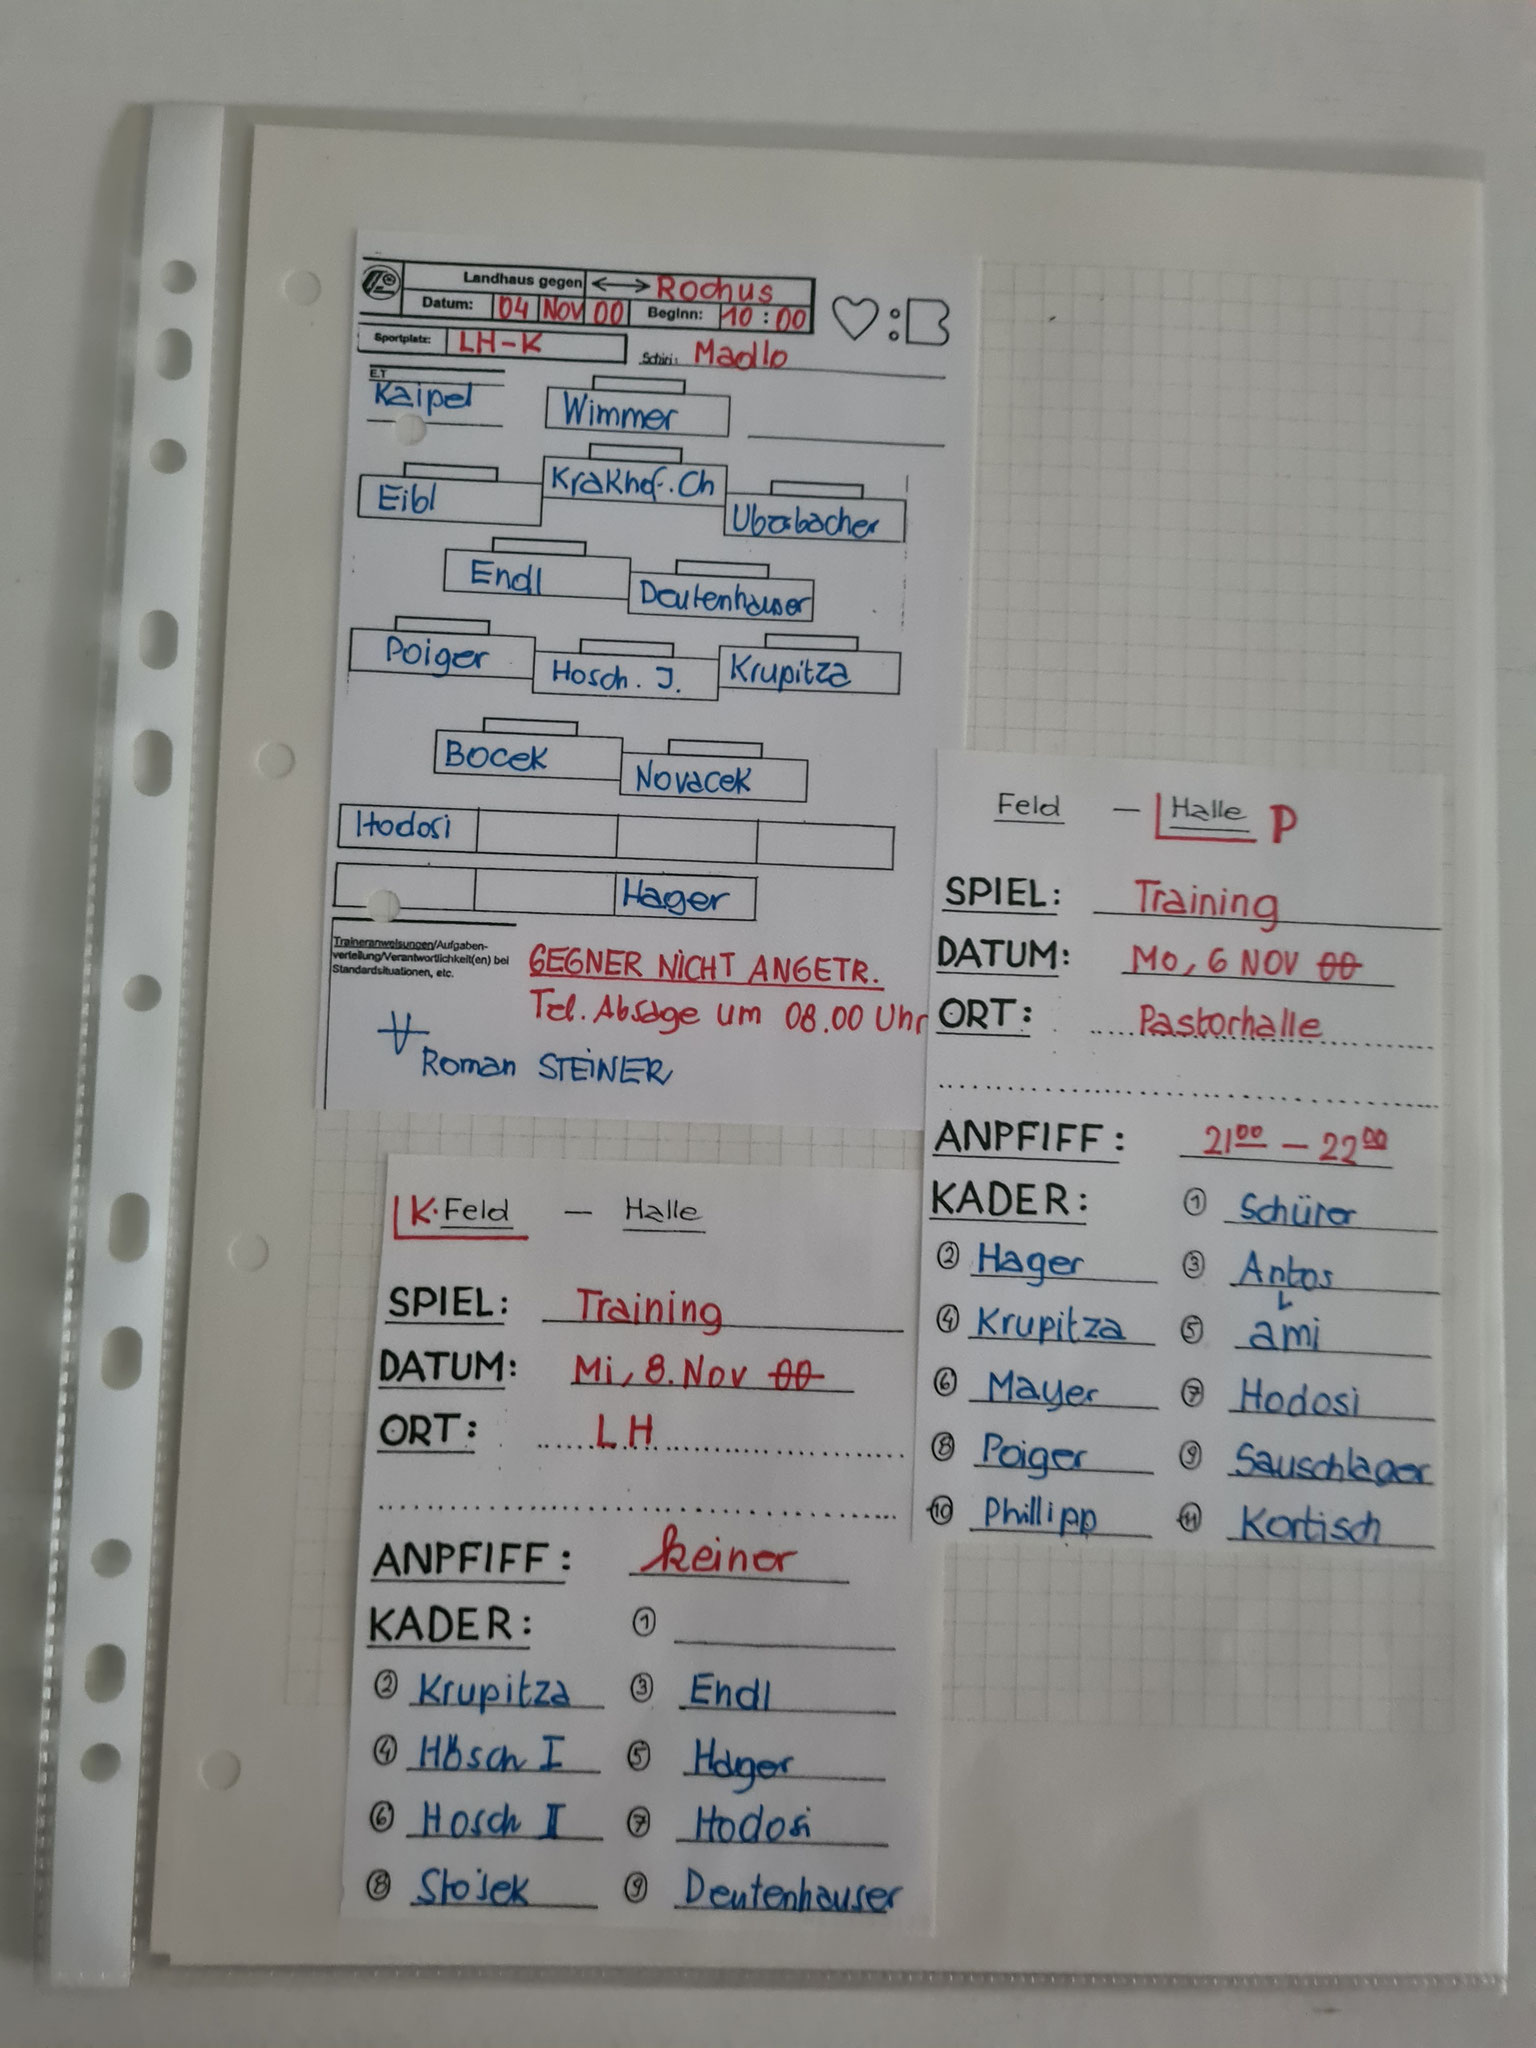 Landhaus gegen ⟷ Rochus
Datum: 04 Nov 00 Beginn: 10:00
Sportplatz: LH-K Schiri: Madlo
E.T
Kaipel Wimmer
Eibl Krakhof. Ch
Endl Deutenhauser
Poiger Hosch. J. Krupitza
Bocek Novacek
Hodosi
Hager
Traineranweisungen/Aufgaben-
verteilung/Verantwortlichkeit(en) bei
Standardsituationen, etc.
GEGNER NICHT ANGETR.
Tel. Absage um 08.00 Uhr
Roman STEINER
Feld – Halle P
SPIEL: Training
DATUM: Mo, 6 NOV 00
ORT: Pastorhalle
ANPFIFF: 21 00 – 22 00
KADER: 1 Schürer
2 Hager 3 Antos
4 Krupitza 5 ami
6 Mayer 7 Hodosi
8 Poiger 9 Sauschlager
10 Phillipp 11 Kortisch
K. Feld – Halle
SPIEL: Training
DATUM: Mi, 8. Nov 00
ORT: LH
ANPFIFF: keiner
KADER: 1
2 Krupitza 3 Endl
4 Hosch I 5 Hager
6 Hosch II 7 Hodosi
8 Stojek 9 Deutenhauser